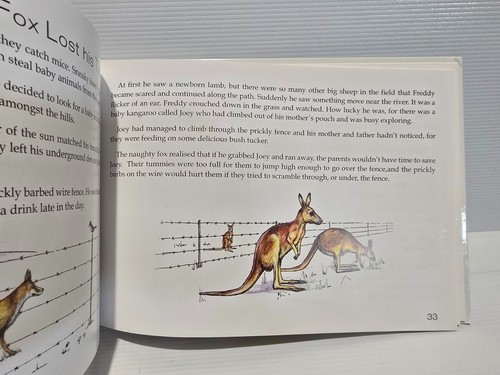 Fox Lost his
they catch mice. Sneaky
steal baby animals from
decided to look for a
amongst the hills.
of the sun matched his
left his underground den
prickly barbed wire fence. He
a drink late in the day.
At first he saw a newborn lamb, but there were so many other big sheep in the field that Freddy
became scared and continued along the path. Suddenly he saw something move near the river. It was a
flicker of an ear. Freddy crouched down in the grass and watched. How lucky he was, for there was a
baby kangaroo called Joey who had climbed out of his mother's pouch and was busy exploring.
Joey had managed to climb through the prickly fence and his mother and father hadn't noticed, for
they were feeding on some delicious bush tucker.
The naughty fox realised that if he grabbed Joey and ran away, the parents wouldn't have time to save
Joey. Their tummies were too full for them to jump high enough to go over the fence,and the prickly
barbs on the wire would hurt them if they tried to scramble through, or under, the fence.
33